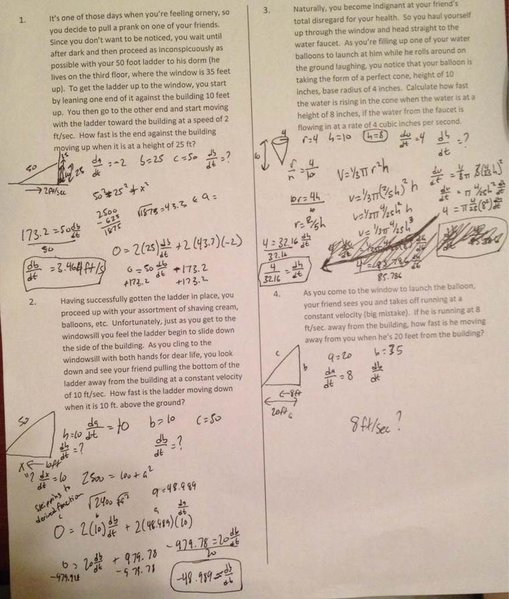 1.
It's one of those days when you're feeling ornery, so
you decide to pull a prank on one of your friends.
Since you don't want to be noticed, you wait until
after dark and then proceed as inconspicuously as
possible with your 50 foot ladder to his dorm (he
lives on the third floor, where the window is 35 feet
up). To get the ladder up to the window, you start
by leaning one end of it against the building 10 feet
up. You then go to the other end and start moving
with the ladder toward the building at a speed of 2
ft/sec. How fast is the end against the building
moving up when it is at a height of 25 ft?
50
25
→ 2ft/sec
da/dt = -2 b=25 c=50 db/dt = ?
50² = 25² + x²
2500
-625
1875
√1875 = 43.3 = a =
0 = 2(25) db/dt + 2(43.3)(-2)
0 = 50 db/dt - 173.2
+173.2 +173.2
173.2 = 50 db/dt
50
db/dt = 3.464 ft/s
2.
Having successfully gotten the ladder in place, you
proceed up with your assortment of shaving cream,
balloons, etc. Unfortunately, just as you get to the
windowsill you feel the ladder begin to slide down
the side of the building. As you cling to the
windowsill with both hands for dear life, you look
down and see your friend pulling the bottom of the
ladder away from the building at a constant velocity
of 10 ft/sec. How fast is the ladder moving down
when it is 10 ft. above the ground?
50
b=10
da/dt = 10 b=10 c=50
db/dt = ?
db/dt = ?
10ft
dx/dt = 10
2500 = 100 + a²
√2400
a = 48.989
skipping to
derived function
0 = 2(10) db/dt + 2(48.989)(10)
0 = 20 db/dt + 979.78
-979.78 -979.78
-979.78 = 20 db/dt
20
-48.989 = db/dt
3.
Naturally, you become indignant at your friend's
total disregard for your health. So you haul yourself
up through the window and head straight to the
water faucet. As you're filling up one of your water
balloons to launch at him while he rolls around on
the ground laughing, you notice that your balloon is
taking the form of a perfect cone, height of 10
inches, base radius of 4 inches. Calculate how fast
the water is rising in the cone when the water is at a
height of 8 inches, if the water from the faucet is
flowing in at a rate of 4 cubic inches per second.
4
10
r=4 h=10 h=8 dv/dt = 4 dh/dt = ?
r/h = 4/10
10r = 4h
r = 2/5h
V = 1/3 π r² h
V = 1/3 π (2/5h)² h
V = 1/3 π 4/25 h² h
V = 1/3 π 4/25 h³
4 = π 4/25 (8²) dh/dt
4 = 32.16 dh/dt
32.16
4/32.16 = dh/dt
85.786
4.
As you come to the window to launch the balloon,
your friend sees you and takes off running at a
constant velocity (big mistake). If he is running at 8
ft/sec. away from the building, how fast is he moving
away from you when he's 20 feet from the building?
c
b
← 8ft
20ft a
a=20 b=35
da/dt = 8 db/dt
8ft/sec ?